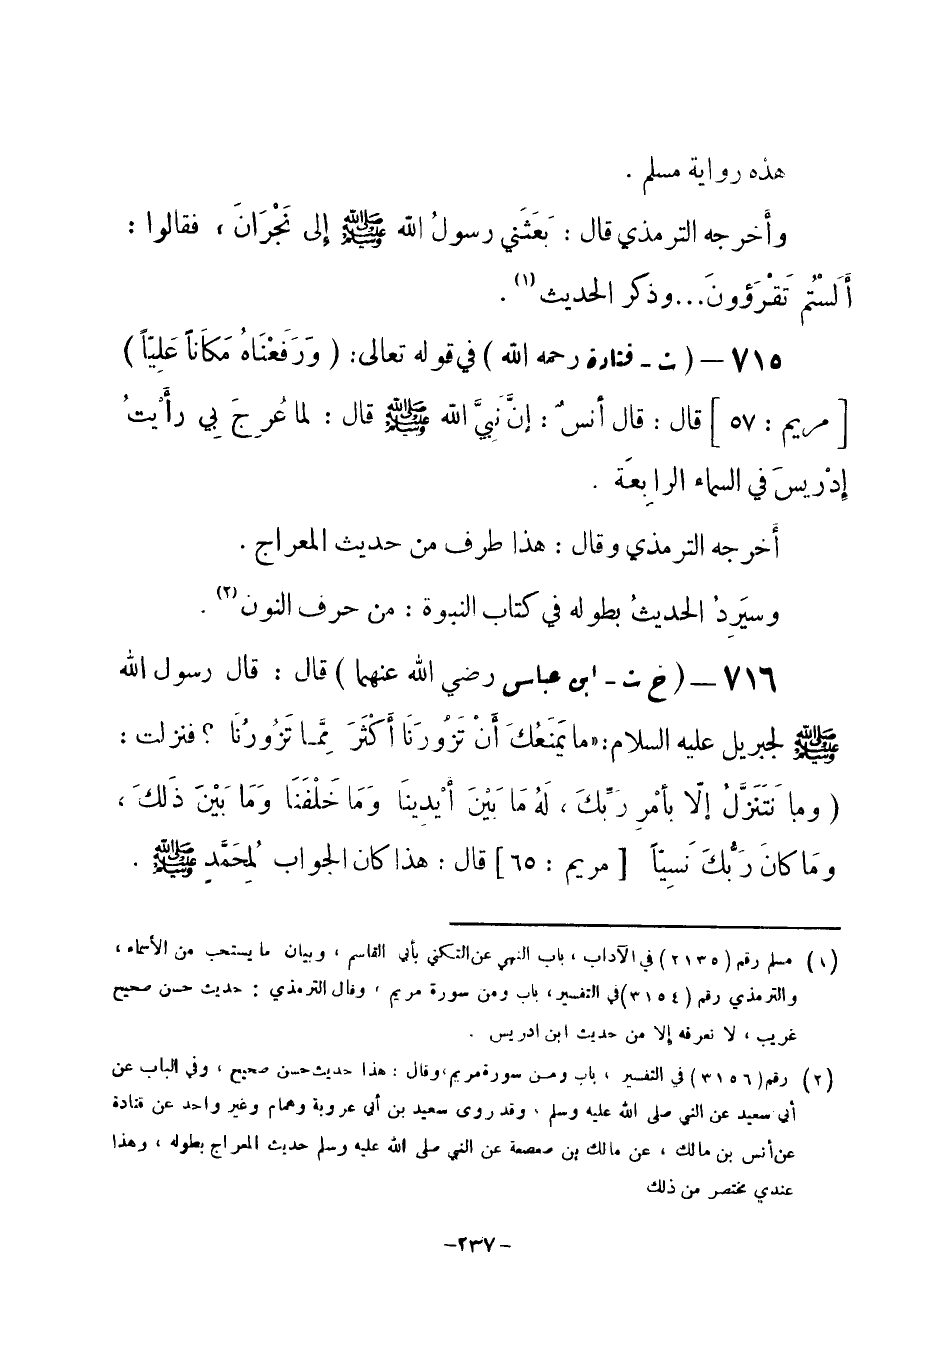 هذه رواية مسلم .
وأخرجه الترمذي قال : بَعَثَني رسولُ الله ﷺ إلى نَجْرَانَ ، فقالوا :
أَلَسْتُم تَقْرَؤونَ...وذكر الحديث(١) .
٧١٥ – ( ت - قتادة رحمه الله ) في قوله تعالى: ( وَرَفَعْنَاهُ مَكَاناً عَليّاً )
[ مريم : ٥٧ ] قال : قال أنسٌ : إنَّ نَبيَّ الله ﷺ قال : لما عُرِجَ بِي رأَيْتُ
إدْريسَ في السماء الرابِعَة .
أخرجه الترمذي وقال : هذا طرف من حديث المعراج .
وسيَرِدُ الحديثُ بطوله في كتاب النبوة : من حرف النون(٢) .
٧١٦ – ( خ ت - ابن عباس رضي الله عنهما ) قال : قال رسول الله
ﷺ لجبريل عليه السلام: «ما يَمنَعُكَ أَنْ تَزُورَنَا أَكْثَرَ مِمَّا تَزُورُنَا ؟ فنزلت :
( وما نَتَنَزَّلُ إلّا بأَمْرِ رَبِّكَ ، لَهُ مَا بَيْنَ أَيْدِينَا وَمَا خَلْفَنَا وَمَا بَيْنَ ذَلكَ ،
ومَا كانَ رَبُّكَ نَسِيّاً [ مريم : ٦٥ ] قال : هذا كان الجواب لمحَمَّدٍ ﷺ .
(١) مسلم رقم ( ٢١٣٥ ) في الآداب ، باب النهي عن التكني بأبي القاسم ، وبيان ما يستحب من الأسماء ،
والترمذي رقم ( ٣١٥٤ ) في التفسير ، باب ومن سورة مريم ، وقال الترمذي : حديث حسن صحيح
غريب ، لا نعرفه إلا من حديث ابن ادريس .
(٢) رقم ( ٣١٥٦ ) في التفسير ، باب ومن سورة مريم ، وقال : هذا حديث حسن صحيح ، وفي الباب عن
أبي سعيد عن النبي صلى الله عليه وسلم ، وقد روى سعيد بن أبي عروبة وهمام وغير واحد عن قتادة
عن أنس بن مالك ، عن مالك بن صعصعة عن النبي صلى الله عليه وسلم حديث المعراج بطوله ، وهذا
عندي مختصر من ذلك
-٢٣٧-